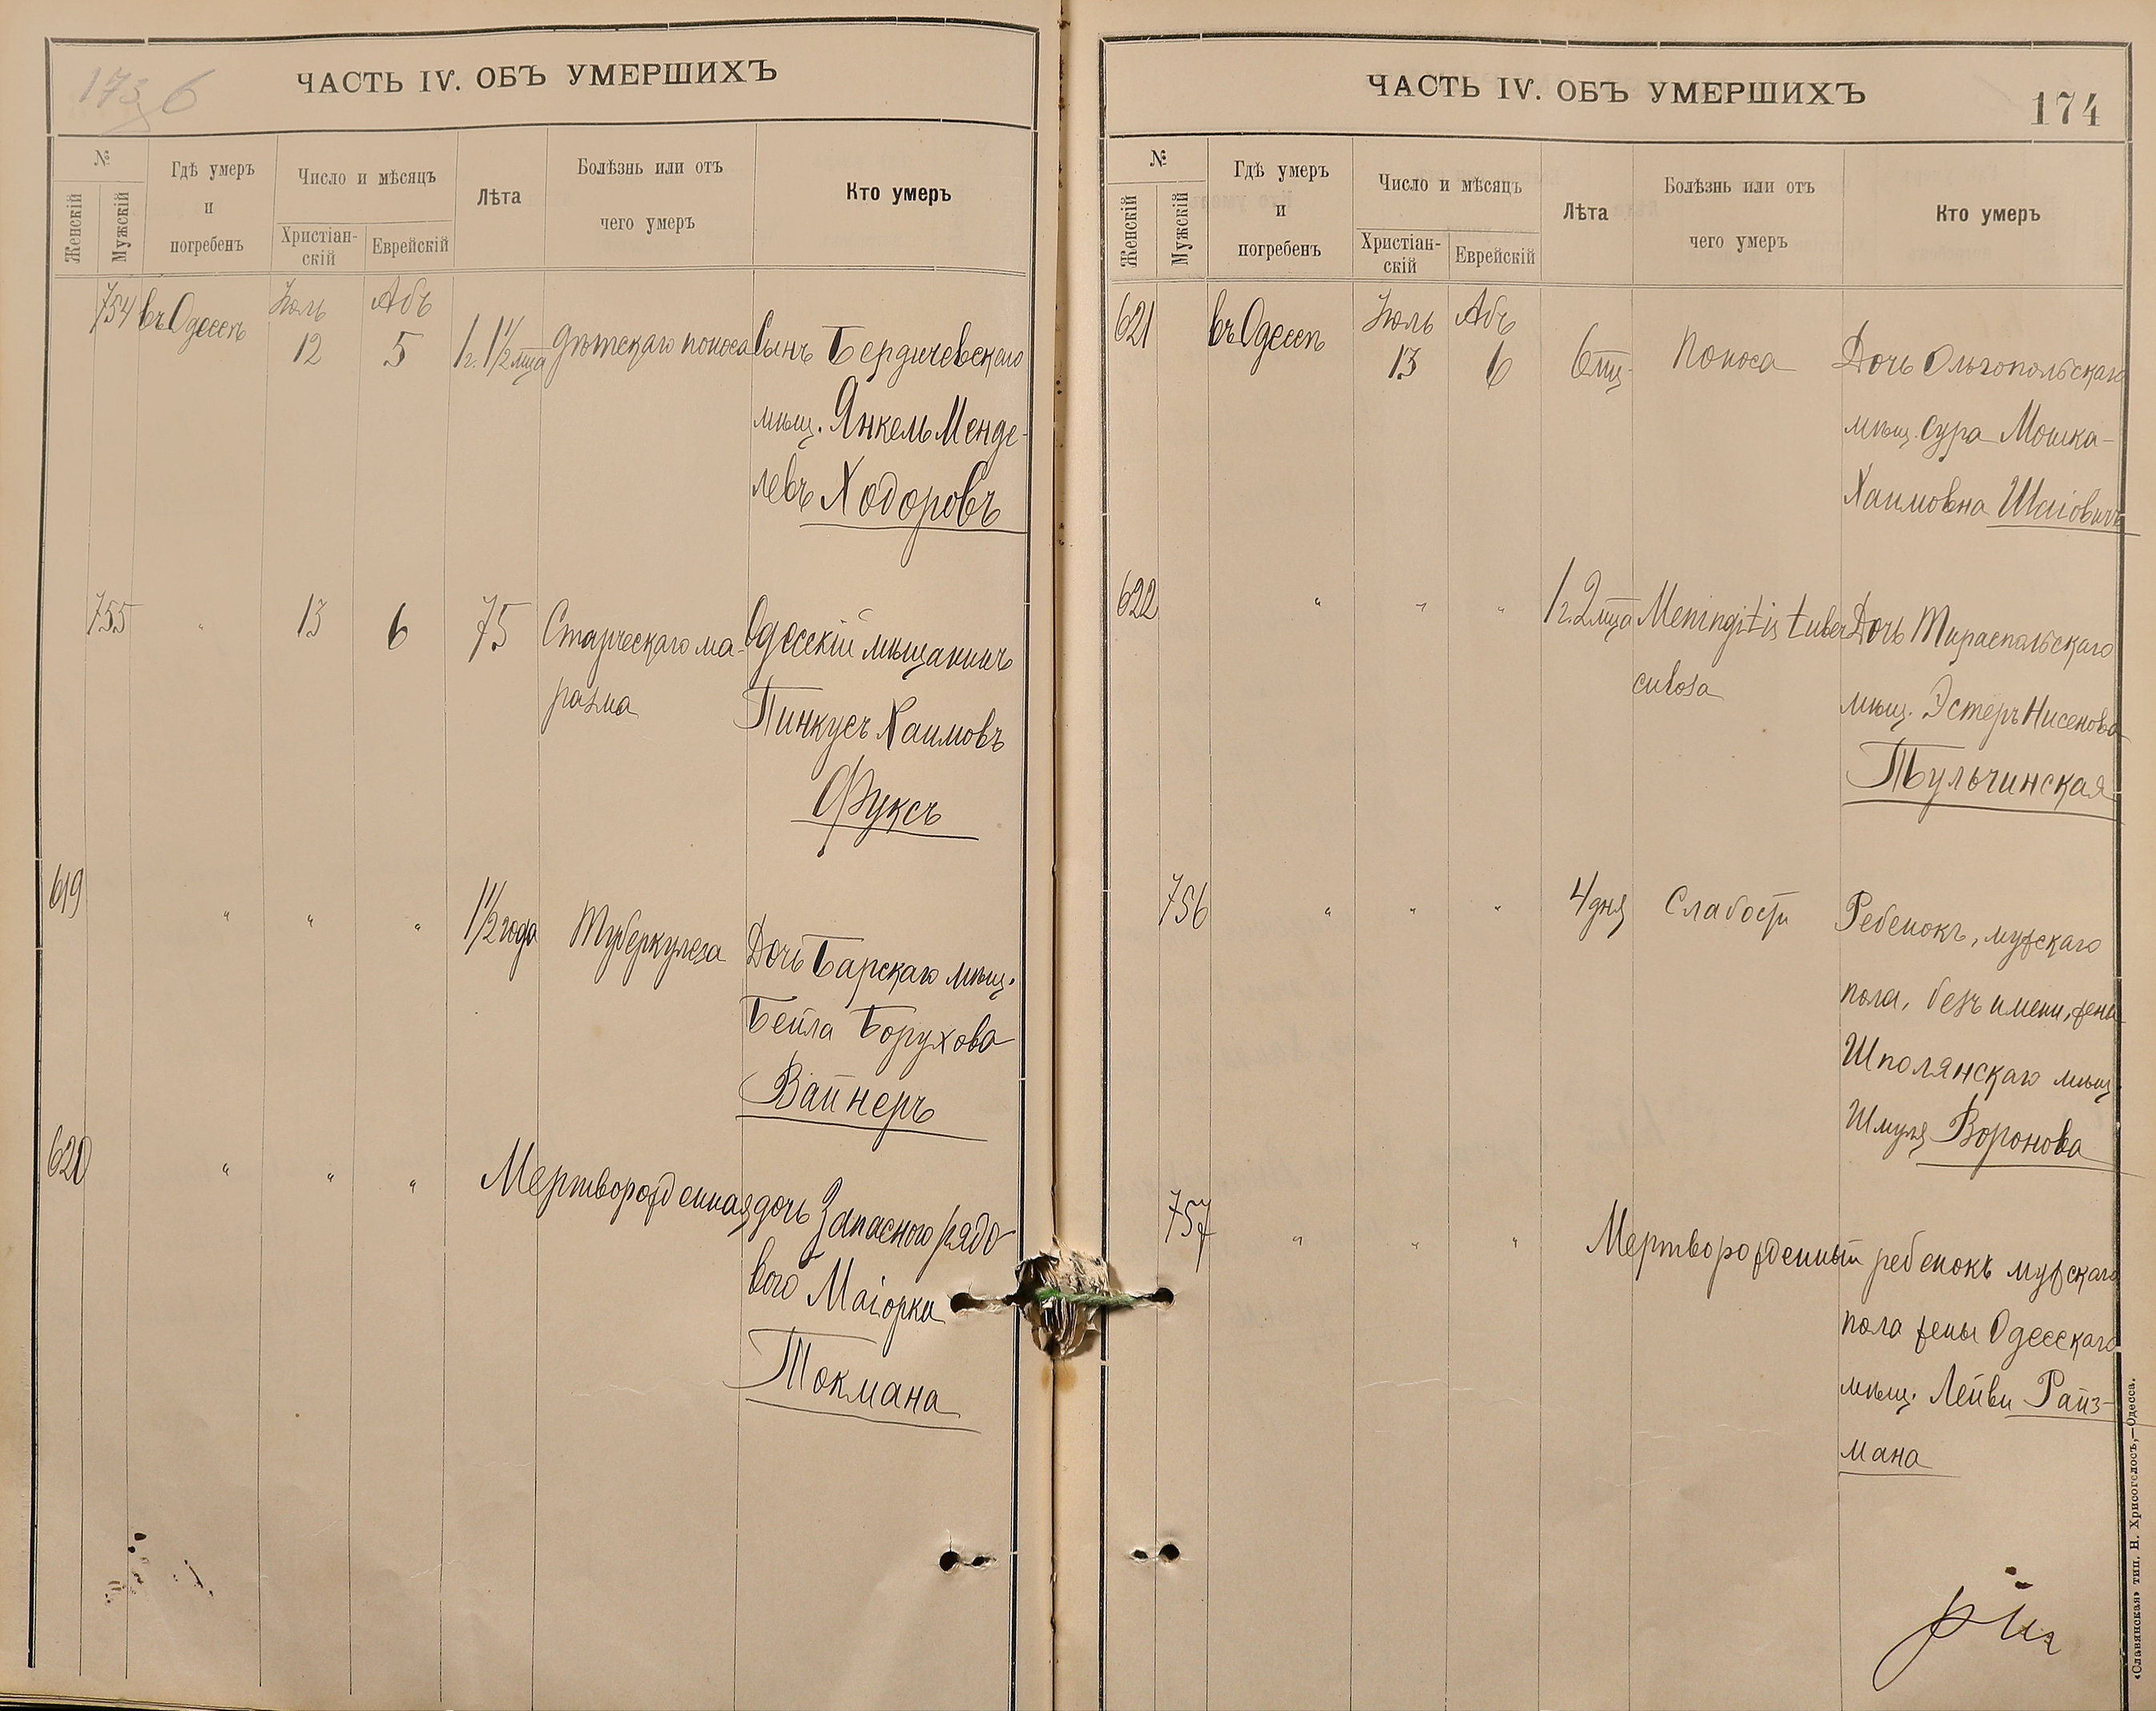 173 б
ЧАСТЬ IV. ОБЪ УМЕРШИХЪ
№
Женскій
Мужскій
Гдѣ умеръ
и
погребенъ
Число и мѣсяцъ
Христіан-
скій
Еврейскій
Лѣта
Болѣзнь или отъ
чего умеръ
Кто умеръ
754 въ Одессѣ Іюль 12 Абъ 5 1 г. 1 1/2 мца дѣтскаго поноса Сынъ Бердичевскаго
мѣщ. Янкель Менде-
левъ Ходоровъ
755 " 13 6 75 Старческаго ма- Одесскій мѣщанинъ
разма Пинкусъ Хаимовъ
Фуксъ
619 " " " 1 1/2 года Туберкулеза Дочь Барскаго мѣщ.
Бейла Борухова
Вайнеръ
620 " " " Мертворожденная дочь Запасного рядо-
вого Маіорка
Токмана
ЧАСТЬ IV. ОБЪ УМЕРШИХЪ
174
№
Женскій
Мужскій
Гдѣ умеръ
и
погребенъ
Число и мѣсяцъ
Христіан-
скій
Еврейскій
Лѣта
Болѣзнь или отъ
чего умеръ
Кто умеръ
621 въ Одессѣ Іюль 13 Абъ 6 6 мц. Поноса Дочь Ольгопольскаго
мѣщ. Сура Мошка-
Хаимовна Шаіовичъ
622 " " " 1 г. 2 мца Meningitis tuber Дочь Тираспольскаго
culosa мѣщ. Эстеръ Нисенова
Тульчинская
756 " " " 4 дня Слабости Ребенокъ, мужскаго
пола, безъ имени, жены
Шполянскаго мѣщ.
Шмуля Воронова
757 " " " Мертворожденный ребенокъ мужскаго
пола жены Одесскаго
мѣщ. Лейви Райз-
мана
«Славянская» тип. Н. Хрисогелосъ,—Одесса.